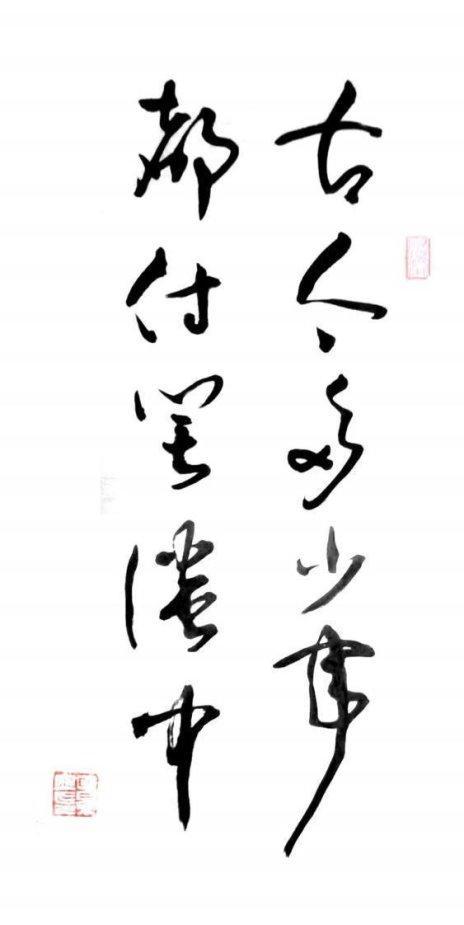 古今多少事
都付笑談中